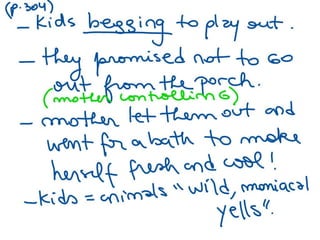 (p.304)
- Kids begging to play out.
- they promised not to GO
out from the porch.
(mother controlling)
- mother let them out and
went for a bath to make
herself fresh and cool!
- Kids = animals "wild, maniacal
yells".